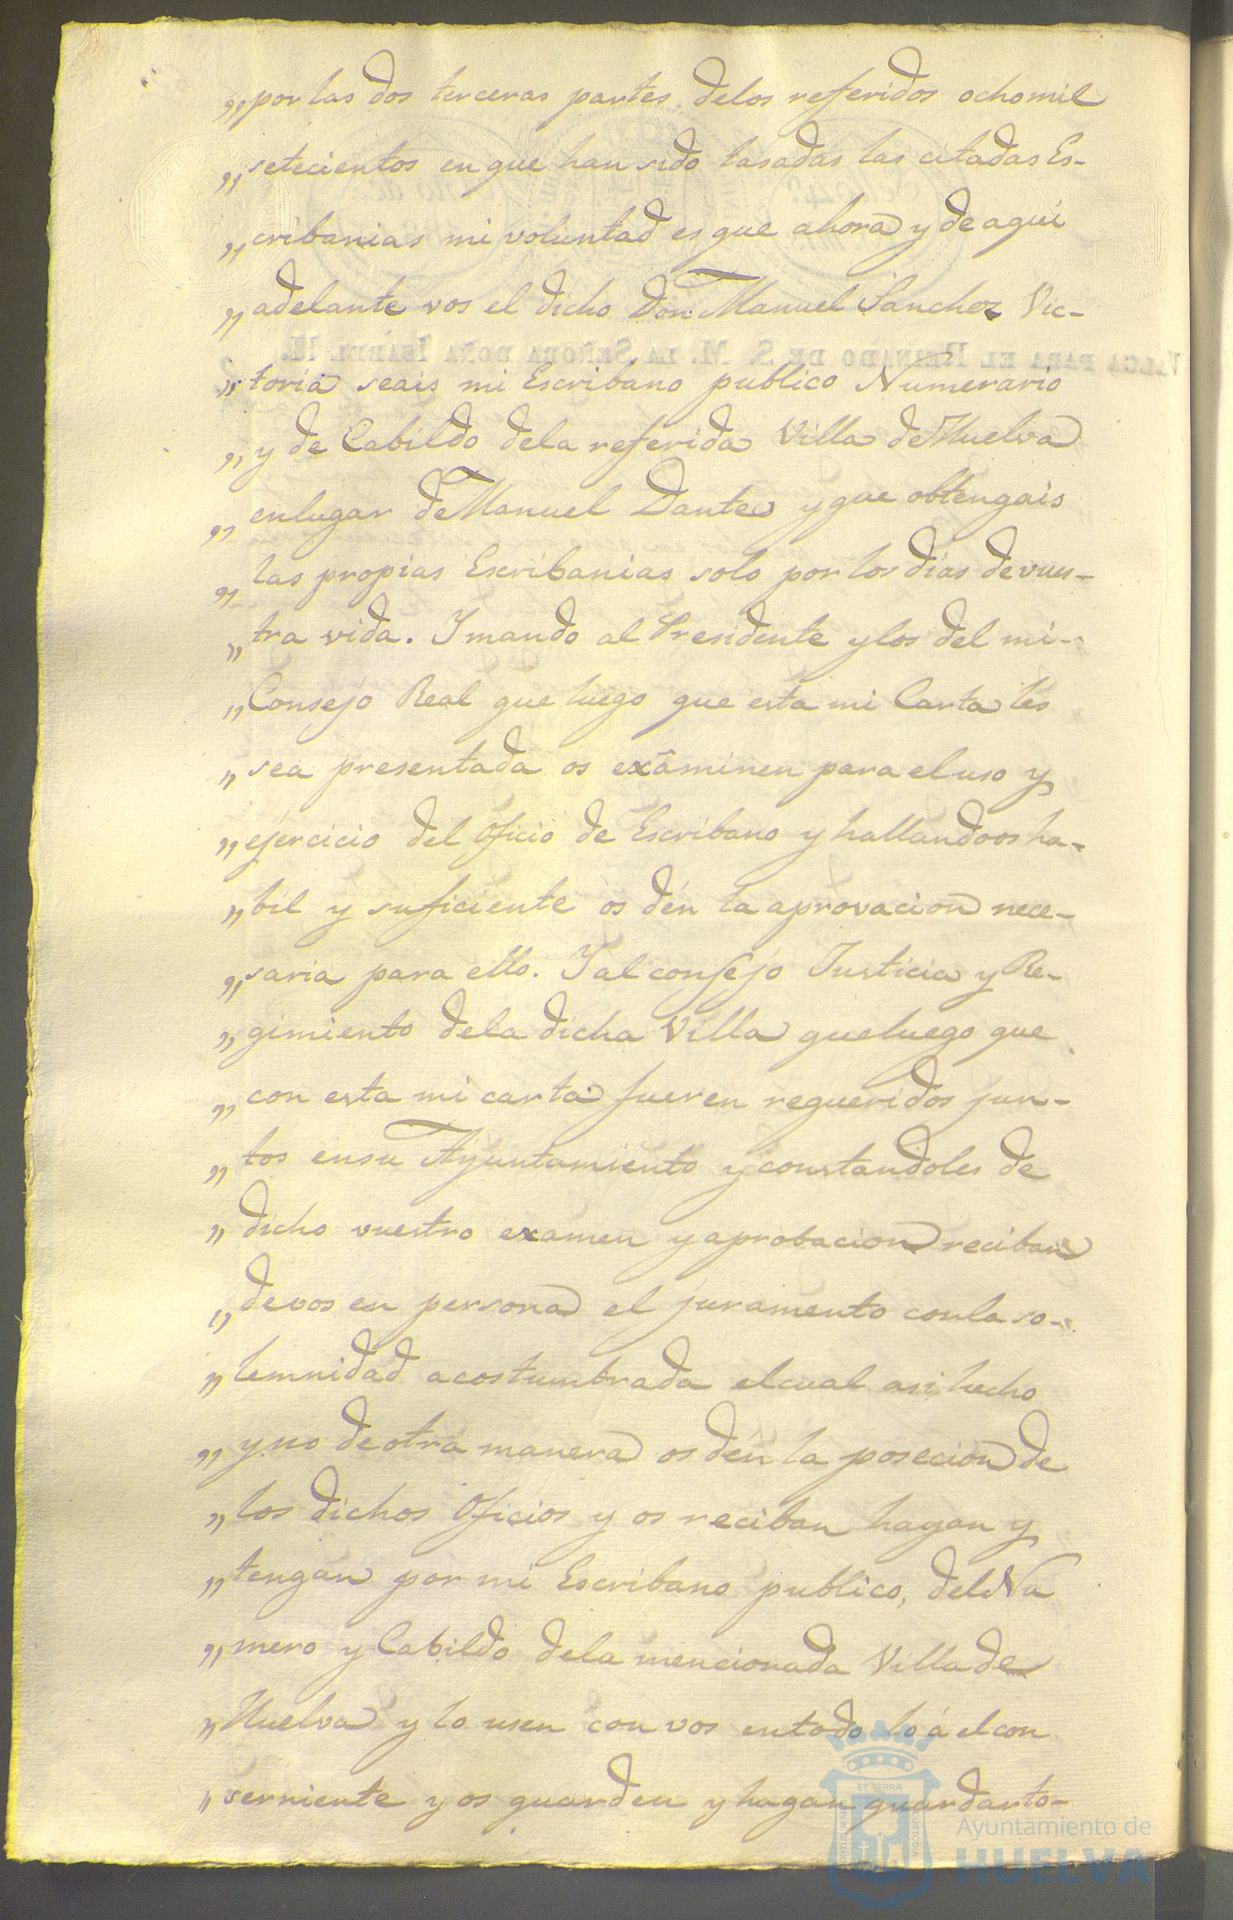 „por las dos terceras partes delos referidos ochomil
„setecientos en que han sido tasadas las citadas Es-
„cribanias mi voluntad es que ahora y de aqui
„adelante vos el dicho Don Manuel Sanchez Vic-
VALGA PARA EL REINADO DE S. M. LA SEÑORA DOÑA ISABEL II.
„toria seais mi Escribano publico Numerario
„y de Cabildo dela referida Villa de Huelva
„enlugar de Manuel Dantes y que obtengais
„las propias Escribanias solo por los dias de vues-
„tra vida. Y mando al Presidente y los del mi
„Consejo Real que luego que esta mi Carta les
„sea presentada os exâminen para el uso y
„ejercicio del Oficio de Escribano y hallandoos ha-
„bil y suficiente os dén la aprovacion nece-
„saria para ello. Y al consejo Justicia y Re-
„gimiento dela dicha Villa que luego que
„con esta mi carta fueren requeridos jun-
„tos en su Ayuntamiento y constandoles de
„dicho vuestro examen y aprobacion reciban
„de vos en persona el juramento con la so-
„lemnidad acostumbrada el cual asi hecho
„y no de otra manera os dén la posecion de
„los dichos Oficios y os reciban hayan y
„tengan por mi Escribano publico, del Nu
„mero y Cabildo dela mencionada Villa de
„Huelva y lo usen con vos en todo lo á el con
„serniente y os guarden y hagan guardar to-
ET TERRÆ
Ayuntamiento de
HUELVA